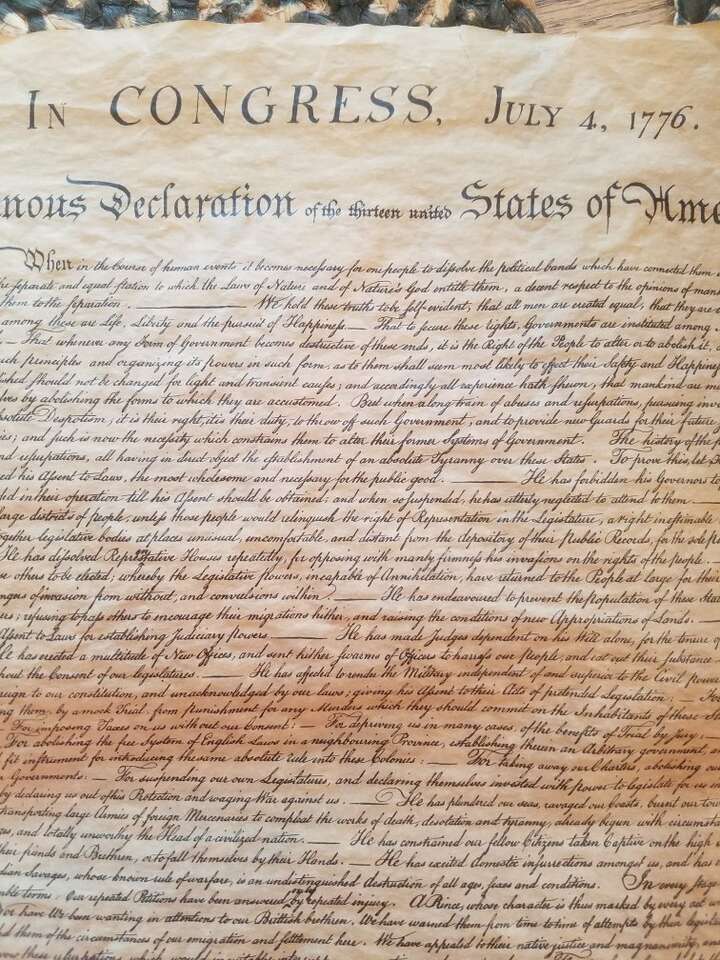 In CONGRESS, July 4, 1776.
nous Declaration of the thirteen united States of Ame
When in the Course of human events it becomes necessary for one people to dissolve the political bands which have connected them
the separate and equal station to which the Laws of Nature and of Nature's God entitle them, a decent respect to the opinions of man
them to the separation. We hold these truths to be self-evident, that all men are created equal, that they are
among these are Life, Liberty and the pursuit of Happiness. — That to secure these rights, Governments are instituted among
— That whenever any Form of Government becomes destructive of these ends, it is the Right of the People to alter or to abolish it,
such principles and organizing its powers in such form, as to them shall seem most likely to effect their Safety and Happiness
lished should not be changed for light and transient causes; and accordingly all experience hath shewn, that mankind are m
lves by abolishing the forms to which they are accustomed. But when a long train of abuses and usurpations, pursuing inva
bsolute Despotism, it is their right, it is their duty, to throw off such Government, and to provide new Guards for their future
ies; and such is now the necessity which constrains them to alter their former Systems of Government. The history of the p
nd usurpations, all having in direct object the establishment of an absolute Tyranny over these States. To prove this, let
ed his Assent to Laws, the most wholesome and necessary for the public good. — He has forbidden his Governors to
ded in their operation till his Assent should be obtained; and when so suspended, he has utterly neglected to attend to them. —
large districts of people, unless those people would relinquish the right of Representation in the Legislature, a right inestimable
ogether legislative bodies at places unusual, uncomfortable, and distant from the depository of their Public Records, for the sole p
He has dissolved Representative Houses repeatedly, for opposing with manly firmness his invasions on the rights of the people. —
se others to be elected; whereby the Legislative powers, incapable of Annihilation, have returned to the People at large for their
ngers of invasion from without, and convulsions within. — He has endeavoured to prevent the Population of these Stat
ers; refusing to pass others to encourage their migrations hither, and raising the conditions of new Appropriations of Lands. —
Assent to Laws for establishing Judiciary powers. — He has made Judges dependent on his Will alone, for the tenure of
He has erected a multitude of New Offices, and sent hither swarms of Officers to harrass our People, and eat out their substance
hout the Consent of our legislatures. — He has affected to render the Military independent of and superior to the Civil power
reign to our constitution, and unacknowledged by our laws; giving his Assent to their Acts of pretended Legislation: —
ng them, by a mock Trial, from punishment for any Murders which they should commit on the Inhabitants of these St
For imposing Taxes on us without our Consent: — For depriving us in many cases, of the benefits of Trial by Jury: —
For abolishing the free System of English Laws in a neighbouring Province, establishing therein an Arbitrary government, a
fit instrument for introducing the same absolute rule into these Colonies: — For taking away our Charters, abolishing ou
r Governments: — For suspending our own Legislatures, and declaring themselves invested with power to legislate for us in
by declaring us out of his Protection and waging War against us. — He has plundered our seas, ravaged our Coasts, burnt our tow
transporting large Armies of foreign Mercenaries to compleat the works of death, desolation and tyranny, already begun with circumsta
es, and totally unworthy the Head of a civilized nation. — He has constrained our fellow Citizens taken Captive on the high
their friends and Brethren, or to fall themselves by their Hands. — He has excited domestic insurrections amongst us, and has
dian Savages, whose known rule of warfare, is an undistinguished destruction of all ages, sexes and conditions. In every stage
able terms: Our repeated Petitions have been answered by repeated injury. A Prince, whose character is thus marked by every act w
Nor have We been wanting in attentions to our Brittish brethren. We have warned them from time to time of attempts by their legis
ed them of the circumstances of our emigration and settlement here. We have appealed to their native justice and magnanimity, and
vow these usurpations, which would